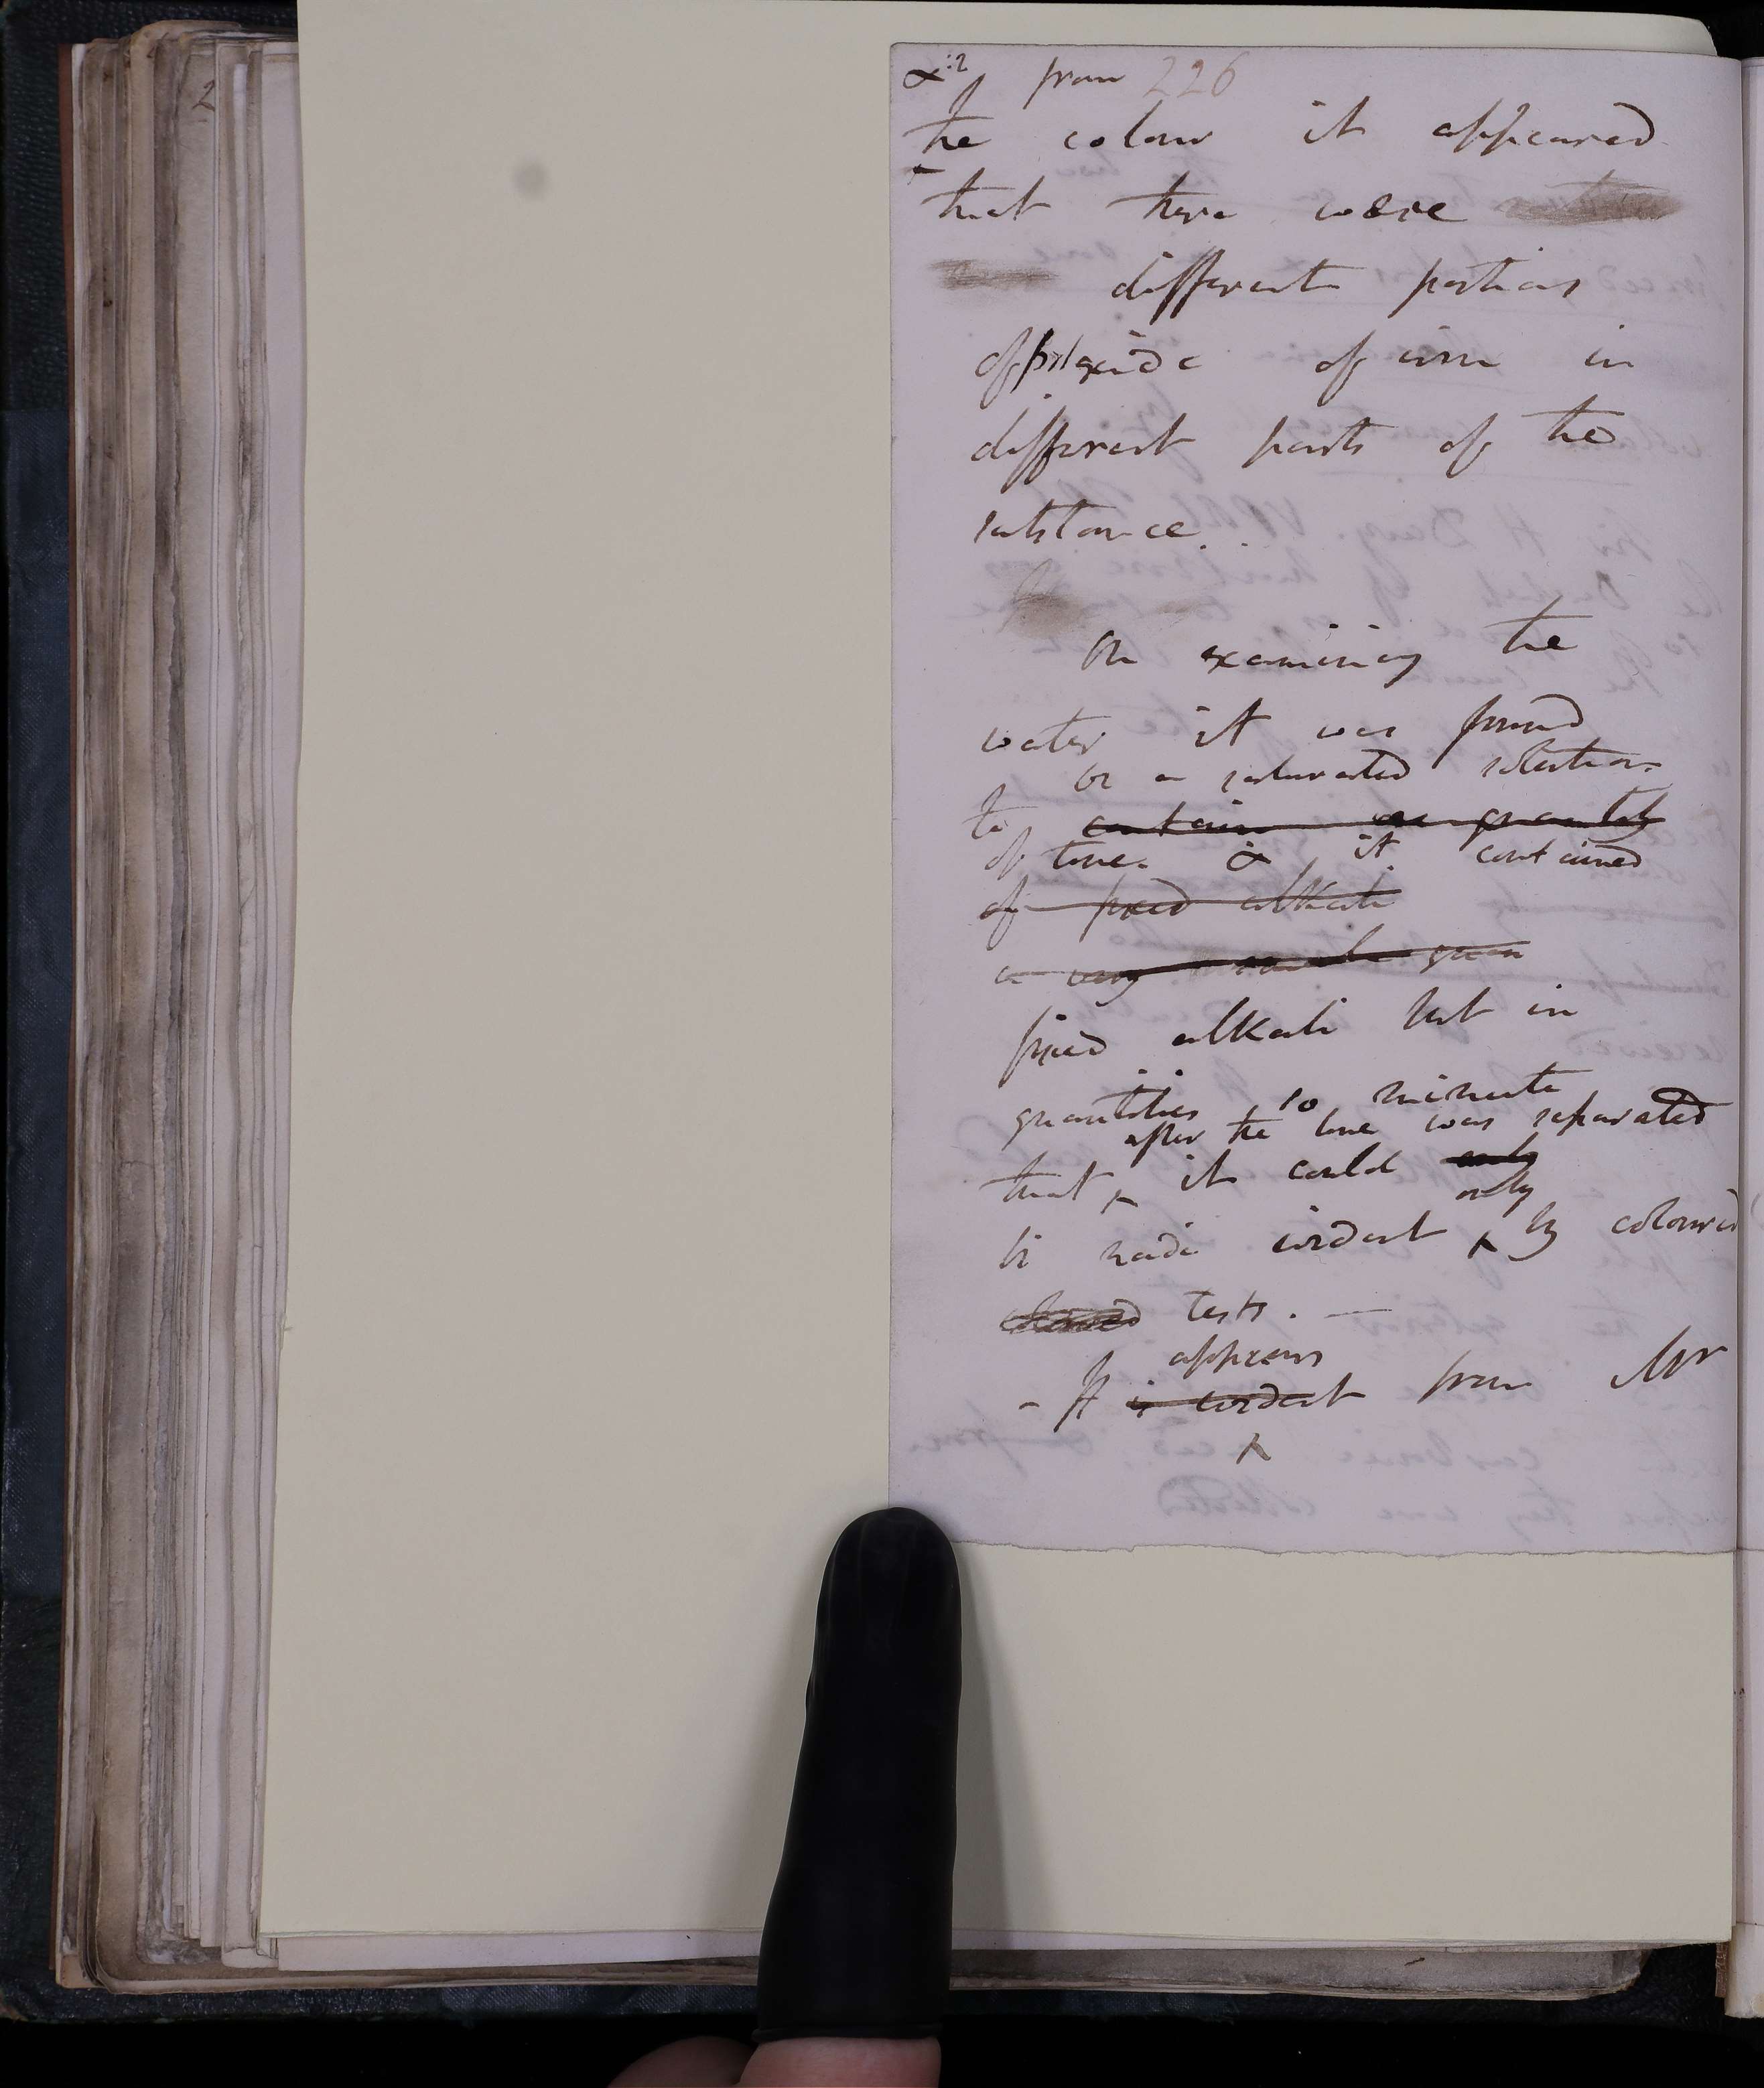 & from 226
the colour it appeared
that there were
different portions
of proxide of iron in
different parts of the
substance.
On examining the
water it was found
be a saturated solution
to contain a quantity
of lime. & it contained
of fixed alkali
a very small quan
fixed alkali but in
quantities so minute
after the lime was separated
that it could only
only
be made evident by coloured
coloured tests. —
appears
- It is evident from Mr